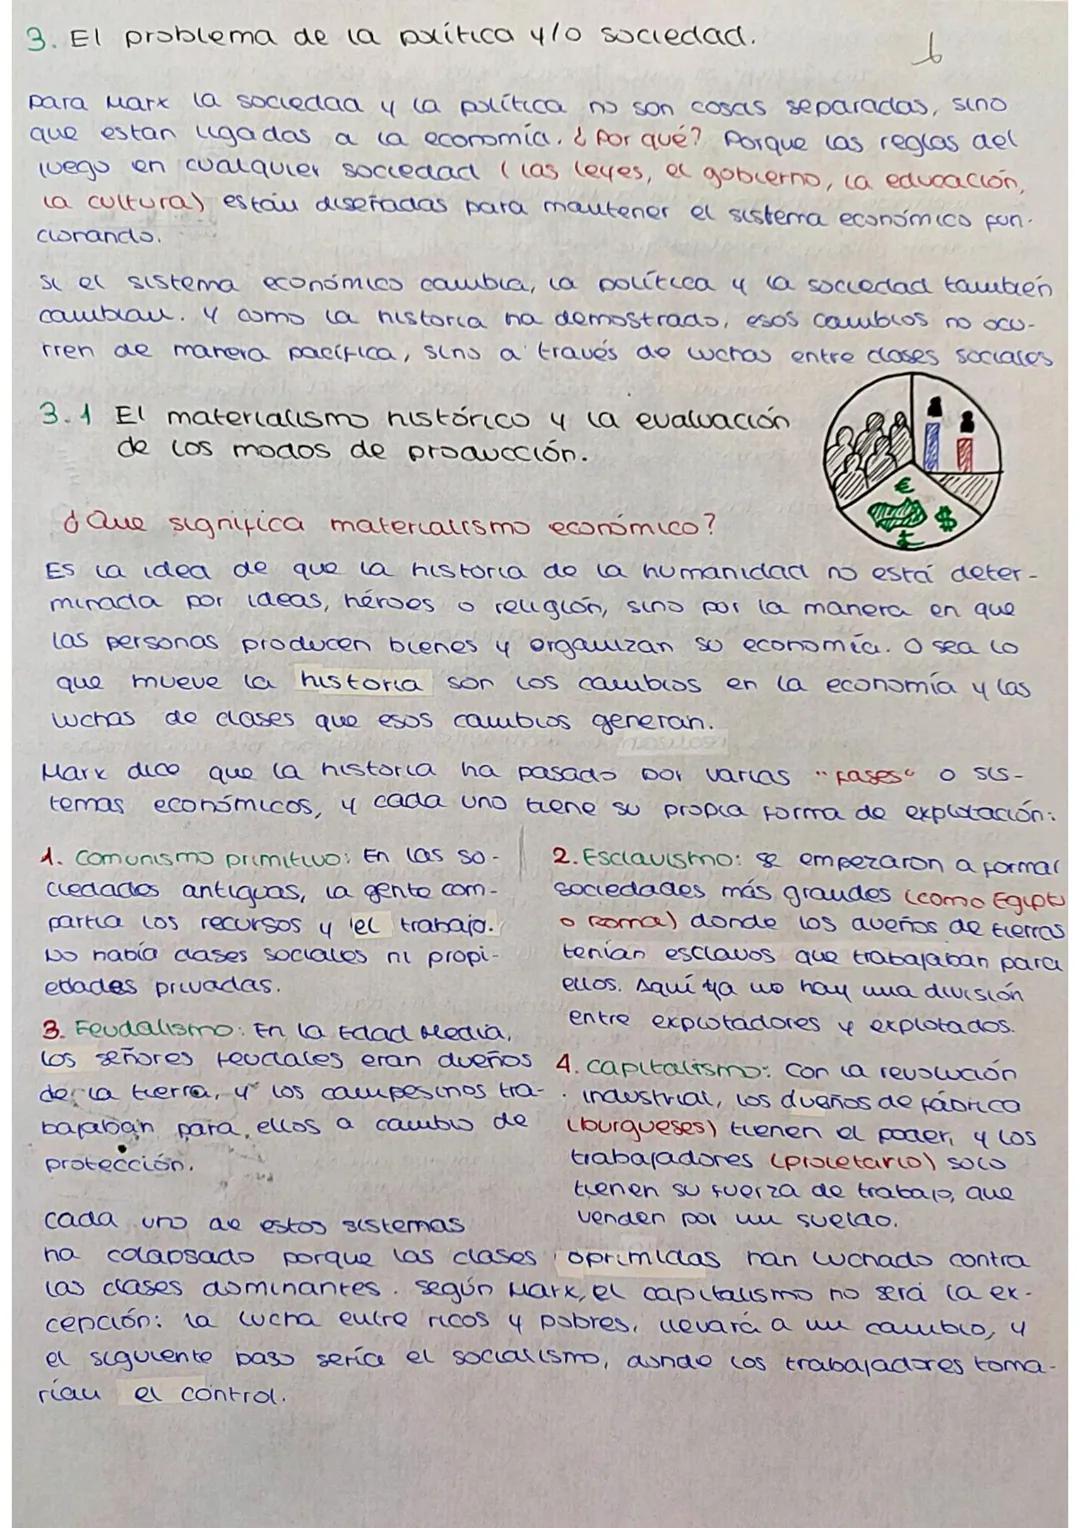 3. El problema de la política y/o sociedad.
6
para Marx la sociedad y la política no son cosas separadas, sino
que estan ligadas a la economía. ¿Por qué? Porque las reglas del
juego en cualquier sociedad (las leyes, el gobierno, la educación,
la cultura) están diseñadas para mantener el sistema económico fun-
cionando.
Si el sistema económico cambia, la política y la sociedad también
cambian. Y como la historia ha demostrado, esos cambios no ocu-
rren de manera pacífica, sino a través de luchas entre clases sociales
3.1 El materialismo histórico y la evaluación
de los modos de producción.
€
$
£
¿Que significa materialismo económico?
Es la idea de que la historia de la humanidad no está deter-
minada por ideas, héroes o religión, sino por la manera en que
las personas producen bienes y organizan su economía. O sea lo
que mueve la historia son los cambios en la economía y las
luchas de clases que esos cambios generan.
Marx dice que la historia ha pasado por varias "fases" o sis-
temas económicos, y cada uno tiene su propia forma de explotación:
1. Comunismo primitivo: En las so-
ciedades antiguas, la gente com-
partía los recursos y el trabajo.
No había clases sociales ni propi-
edades privadas.
2. Esclavismo: se empezaron a formar
sociedades más grandes (como Egipto
o Roma) donde los dueños de tierras
tenían esclavos que trabajaban para
ellos. Aquí ya no hay una división
entre explotadores y explotados.
3. Feudalismo: En la Edad Media,
los señores feudales eran dueños
de la tierra, y los campesinos tra-
bajaban para ellos a cambio de
protección.
4. Capitalismo: Con la revolución
industrial, los dueños de fábrica
(burgueses) tienen el poder, y los
trabajadores (proletario) solo
tienen su fuerza de trabajo, que
venden por un sueldo.
Cada uno de estos sistemas
ha colapsado porque las clases oprimidas han luchado contra
las clases dominantes. Según Marx, el capitalismo no será la ex-
cepción: la lucha entre ricos y pobres, llevará a un cambio, y
el siguiente paso sería el socialismo, donde los trabajadores toma-
rían el control.